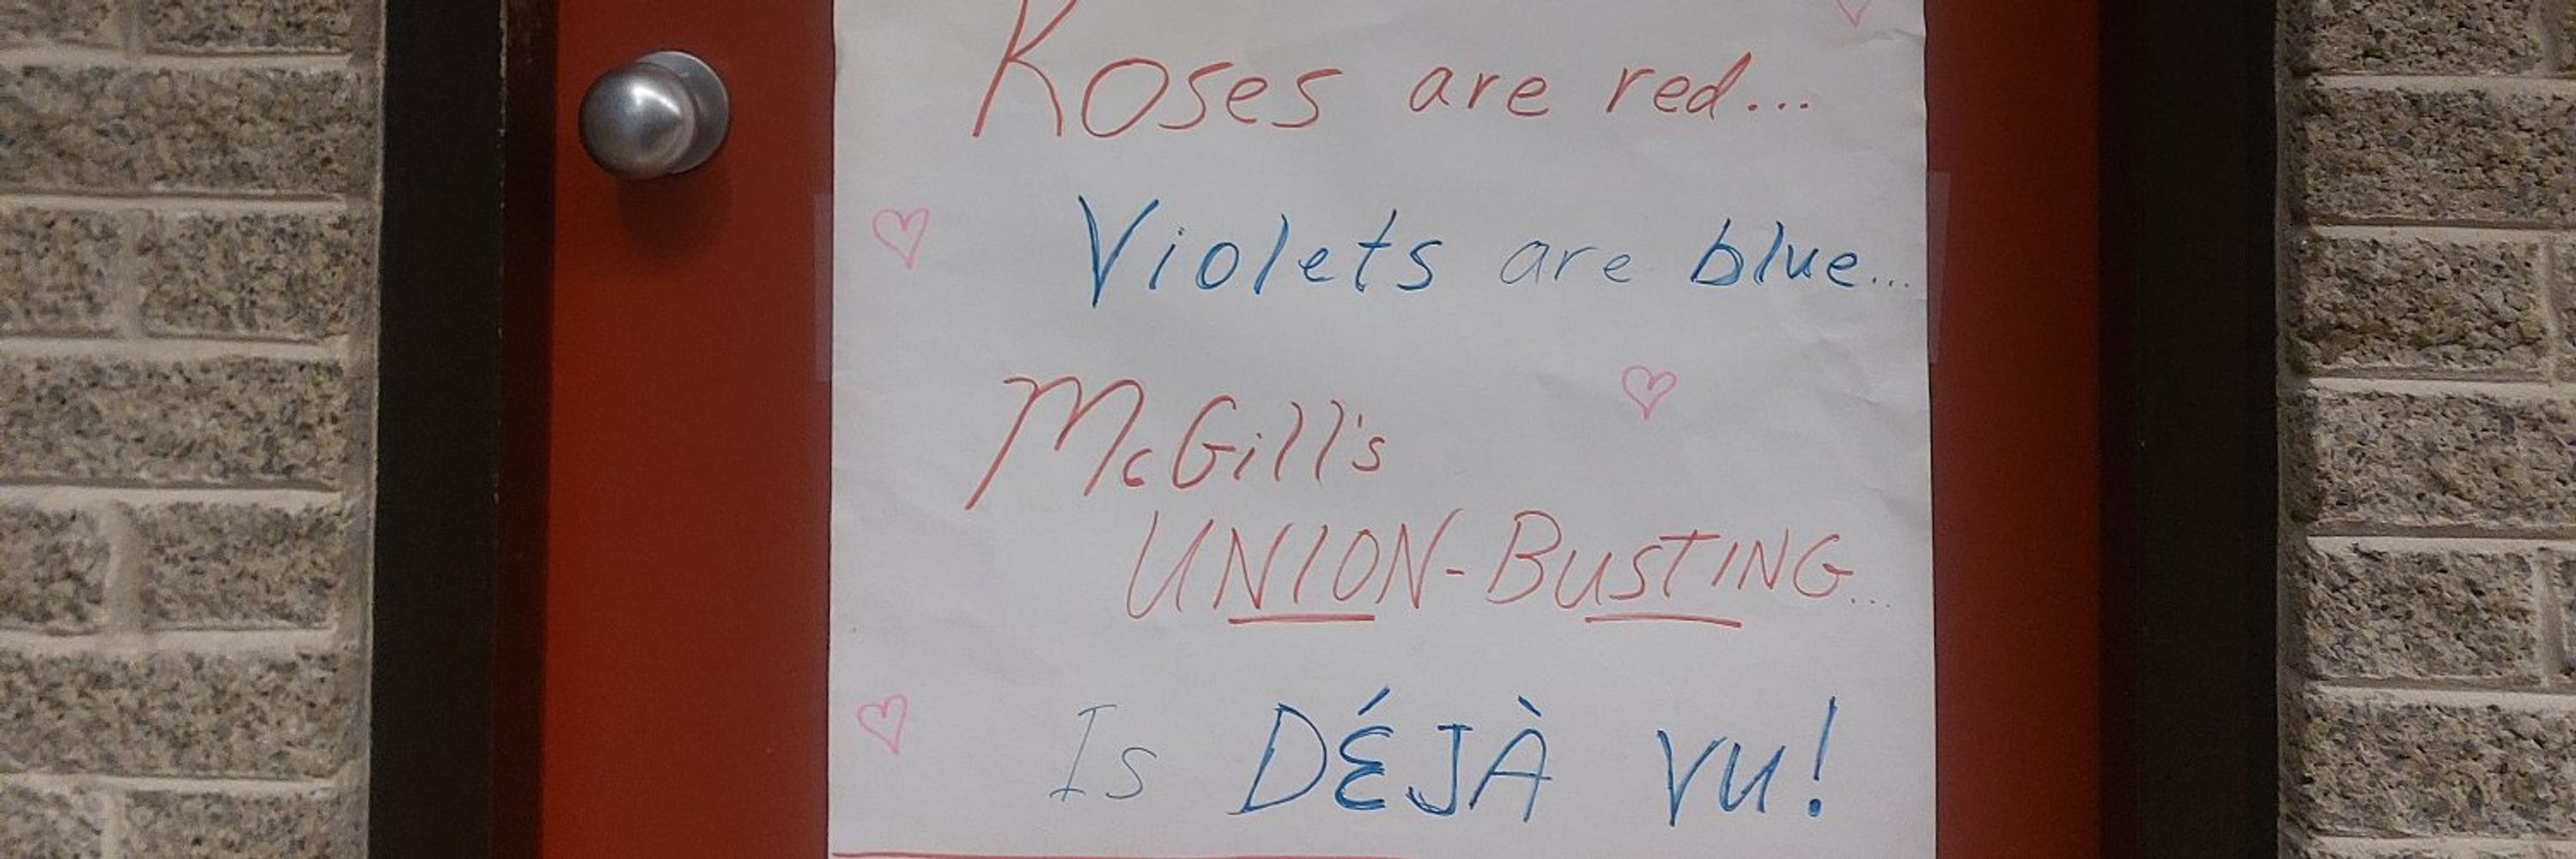 Roses are red...
Violets are blue...
McGill's
UNION-BUSTING...
Is DÉJÀ VU!